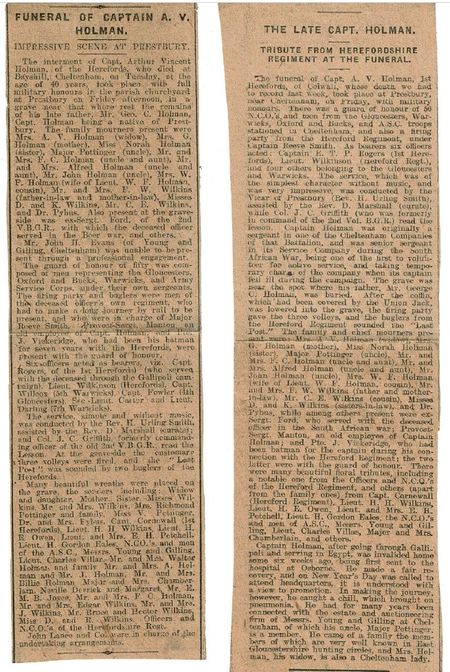 FUNERAL OF CAPTAIN A. V.
HOLMAN.
IMPRESSIVE SCENE AT PRESTBURY.
The interment of Capt. Arthur Vincent
Holman, of the Herefords, who died at
Bayshill, Cheltenham, on Tuesday, at the
age of 40 years, took place with full
military honours in the parish churchyard
at Prestbury on Friday afternoon, in a
grave near that where rest the remains
of his late father, Mr. Geo. C. Holman,
Capt. Holman being a native of Prest-
bury. The family mourners present were
Mrs. A. V. Holman (widow), Mrs. G.
Holman (mother), Miss Norah Holman
(sister), Major Pottinger (uncle), Mr. and
Mrs. F. C. Holman (uncle and aunt), Mr.
and Mrs. Alfred Holman (uncle and
aunt), Mr. John Holman (uncle), Mrs. W.
F. Holman (wife of Lieut. W. F. Holman,
cousin), Mr. and Mrs. F. W. Wilkins
(father-in-law and mother-in-law), Misses
D. and K. Wilkins, Mr. C. E. Wilkins,
and Dr. Pybus. Also present at the grave-
side was ex-Sergt. Ford, of the 2nd
V.B.G.R., with which the deceased officer
served in the Boer war, and others.
Mr. John H. Evans (of Young and
Gilling, Cheltenham) was unable to be pre-
sent through a professional engagement.
The guard of honour of fifty was com-
posed of men representing the Gloucesters,
Oxford and Bucks, and Warwicks, and Army
Service Corps, under their own sergeants.
The firing party and buglers were men of
the deceased officer's own regiment, who
had to make a long journey by rail to be
present, and were in charge of Major
Reeve Smith. Provost-Sergt. Manton, an
Holman, and Pte.
J. Vickeridge, who had been his batman
for seven years with the Herefords, were
present with the guard of honour.
Six officers acted as bearers, viz. Capt.
Rogers, of the 1st Herefords) (who served
with the deceased through the Gallipoli cam-
paign), Lieut. Wilkinson (Herefords), Capt.
Willcox (5th Warwicks), Capt. Fowler (4th
Gloucesters), Sec.-Lieut. Carter and Lieut.
Darling (7th Warwicks).
The service, simple and without music,
was conducted by the Rev. H. Urling Smith,
assisted by the Rev. D. Marshall (curate);
and Col. J. C. Griffith, formerly command-
ing officer of the old 2nd V.B.G.R., read the
Lesson. At the graveside the customary
three volleys were fired, and the "Last
Post" was sounded by two buglers of the
Herefords.
Many beautiful wreaths were placed on
the grave, the senders including: Widow
and daughter, Mother, Sister, Misses Wil-
kins, Mr. and Mrs. Wilkins, Mrs. Richmond
Pottinger and family, Miss V. Pottinger,
Dr. and Mrs. Pybus, Capt. Cornewall (1st
Herefords), Lieut. H. H. Wilkins, Lieut. H.
E. Owen, Lieut. and Mrs. E. H. Petchell,
Lieut. H. Gordon Eales, N.C.O.'s and men
of the A.S.C., Messrs. Young and Gilling,
Lieut. Charles Villar, Mr. and Mrs. Walter
Holman and family, Mr. and Mrs. A. Hol-
man and Mr. J. Holman, Mr. and Mrs.
Billie Holman, Major and Mrs. Chamber-
lain, Neville Derrick and Margaret, Mr. E.
M. B. Joyes, Mr. and Mrs. F. C. Holman,
Mr. and Mrs. Edgar Wilkins, Mr. and Mrs.
J. Wilkins, Mr. Bruce and Hector Wilkins,
Miss D. and E. Wilkins, Officers and
N.C.O.'s of the Herefordshire Regt.
John Lance and Co. were in charge of the
undertaking arrangements.
THE LATE CAPT. HOLMAN.
TRIBUTE FROM HEREFORDSHIRE
REGIMENT AT THE FUNERAL.
The funeral of Capt. A. V. Holman, 1st
Herefords, of Colwall, whose death we had
to record last week, took place at Prestbury,
near Cheltenham, on Friday, with military
honours. There was a guard of honour of 50
N.C.O.'s and men from the Gloucesters, War-
wicks, Oxford and Bucks, and A.S.C. troops
stationed in Cheltenham, and also a firing
party from the Hereford Regiment, under
Captain Reeve Smith. As bearers six officers
acted: Captain E. T. P. Rogers (1st Here-
fords), Lieut. Wilkinson (Hereford Regt.),
and four others belonging to the Gloucesters
and Warwicks. The service, which was of
the simplest character without music, and
was very impressive, was conducted by the
Vicar of Prestbury (Rev. H. Urling Smith),
assisted by the Rev. D. Marshall (curate),
while Col. J. C. Griffith (who was formerly
in command of the 2nd Vol. B.G.R.) read the
lesson. Captain Holman was originally a
sergeant in one of the Cheltenham Companies
of that Battalion, and was senior sergeant
in its Service Company during the South
African War, being one of the first to volun-
teer for active service, and taking tempo-
rary charge of the company when its captain
fell ill during the campaign. The grave was
near the spot where his father, Mr. George
C. Holman, was buried. After the coffin,
which had been covered by the Union Jack,
was lowered into the grave, the firing party
gave three volleys, and the buglers from
the Hereford Regiment sounded the "Last
Post." The family and chief mourners pre-
sent were: Mrs. A. V. Holman (widow), Mrs.
G. Holman (mother), Miss Norah Holman
(sister), Major Pottinger (uncle), Mr. and
Mrs. F. C. Holman (uncle and aunt), Mr. and
Mrs. Alfred Holman (uncle and aunt), Mr.
John Holman (uncle), Mrs. W. E. Holman
(wife of Lieut. W. F. Holman, cousin), Mr.
and Mrs. F. W. Wilkins (father and mother-
in-law), Mr. C. E. Wilkins (cousin), Misses
D. and K. Wilkins (sisters-in-law), and Dr.
Pybus, while among others present were ex-
Sergt. Ford, who served with the deceased
officer in the South African war; Provost-
Sergt. Manton, an old employee of Captain
Holman; and Pte. J. Vickeridge, who had
been batman for the captain during his con-
nection with the Hereford Regiment; the two
latter were with the guard of honour. There
were many beautiful floral tributes, including
a notable one from the Officers and N.C.O.'s
of the Hereford Regiment, and others (apart
from the family ones) from Capt. Cornewall
(Hereford Regiment), Lieut. H. H. Wilkins,
Lieut. H. E. Owen, Lieut. and Mrs. E. H.
Petchell, Lieut. H. Gordon Eales, the N.C.O.'s
and men of A.S.C., Messrs. Young and Gil-
ling, Lieut. Charles Villar, Major and Mrs.
Chamberlain, and others.
Captain Holman, after going through Galli-
poli and serving in Egypt, was invalided home
some six weeks ago, being first sent to the
hospital at Osborne. He made a fair re-
covery, and on New Year's Day was called to
attend headquarters, it is understood with
a view to promotion. In making the journey,
however, he caught a chill, which brought on
pneumonia. He had for many years been
connected with the estate and auctioneering
firm of Messrs. Young and Gilling at Chel-
tenham, of which his uncle, Major Pottinger,
is a member. He came of a family the mem-
bers of which are very well known in East
Gloucestershire hunting circles, and Mrs. Hol-
man, his widow, is also a Cheltenham lady.